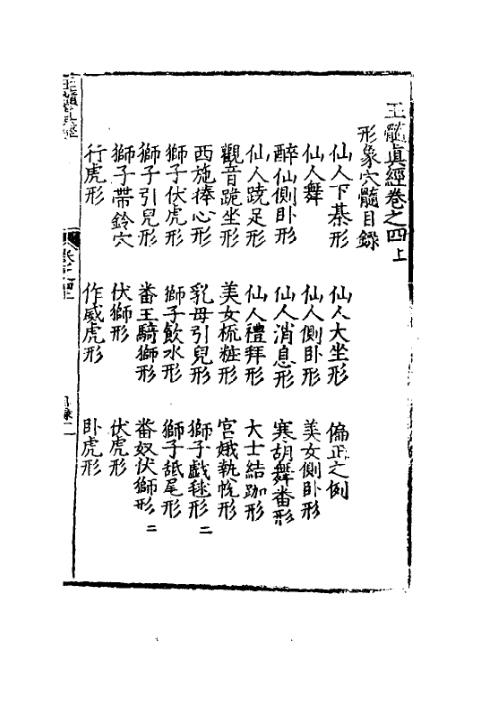 玉髓真經卷之四上
形象穴髓目錄
仙人下棊形 仙人大坐形 偏正之例
仙人舞 仙人側卧形 美女側卧形
醉仙側卧形 仙人消息形 寒胡舞番形
仙人蹺足形 仙人禮拜形 大士結跏形
觀音跪坐形 美女梳粧形 宮娥執帨形
西施捧心形 乳母引兒形 獅子戲毬形二
獅子伏虎形 獅子飲水形 獅子舐尾形
獅子引兒形 番王騎獅形 番奴伏獅形二
獅子帶鈴穴 伏獅形 伏虎形
行虎形 作威虎形 卧虎形